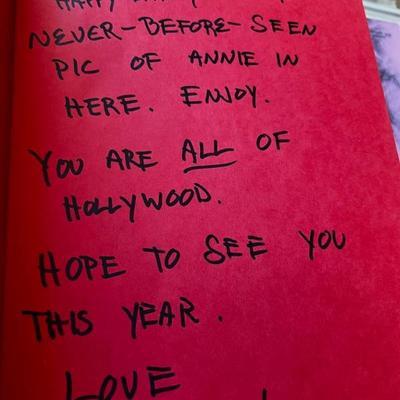 HAPPY
NEVER-BEFORE-SEEN
PIC OF ANNIE IN
HERE. ENJOY.
YOU ARE ALL OF
HOLLYWOOD.
HOPE TO SEE YOU
THIS YEAR.
LOVE